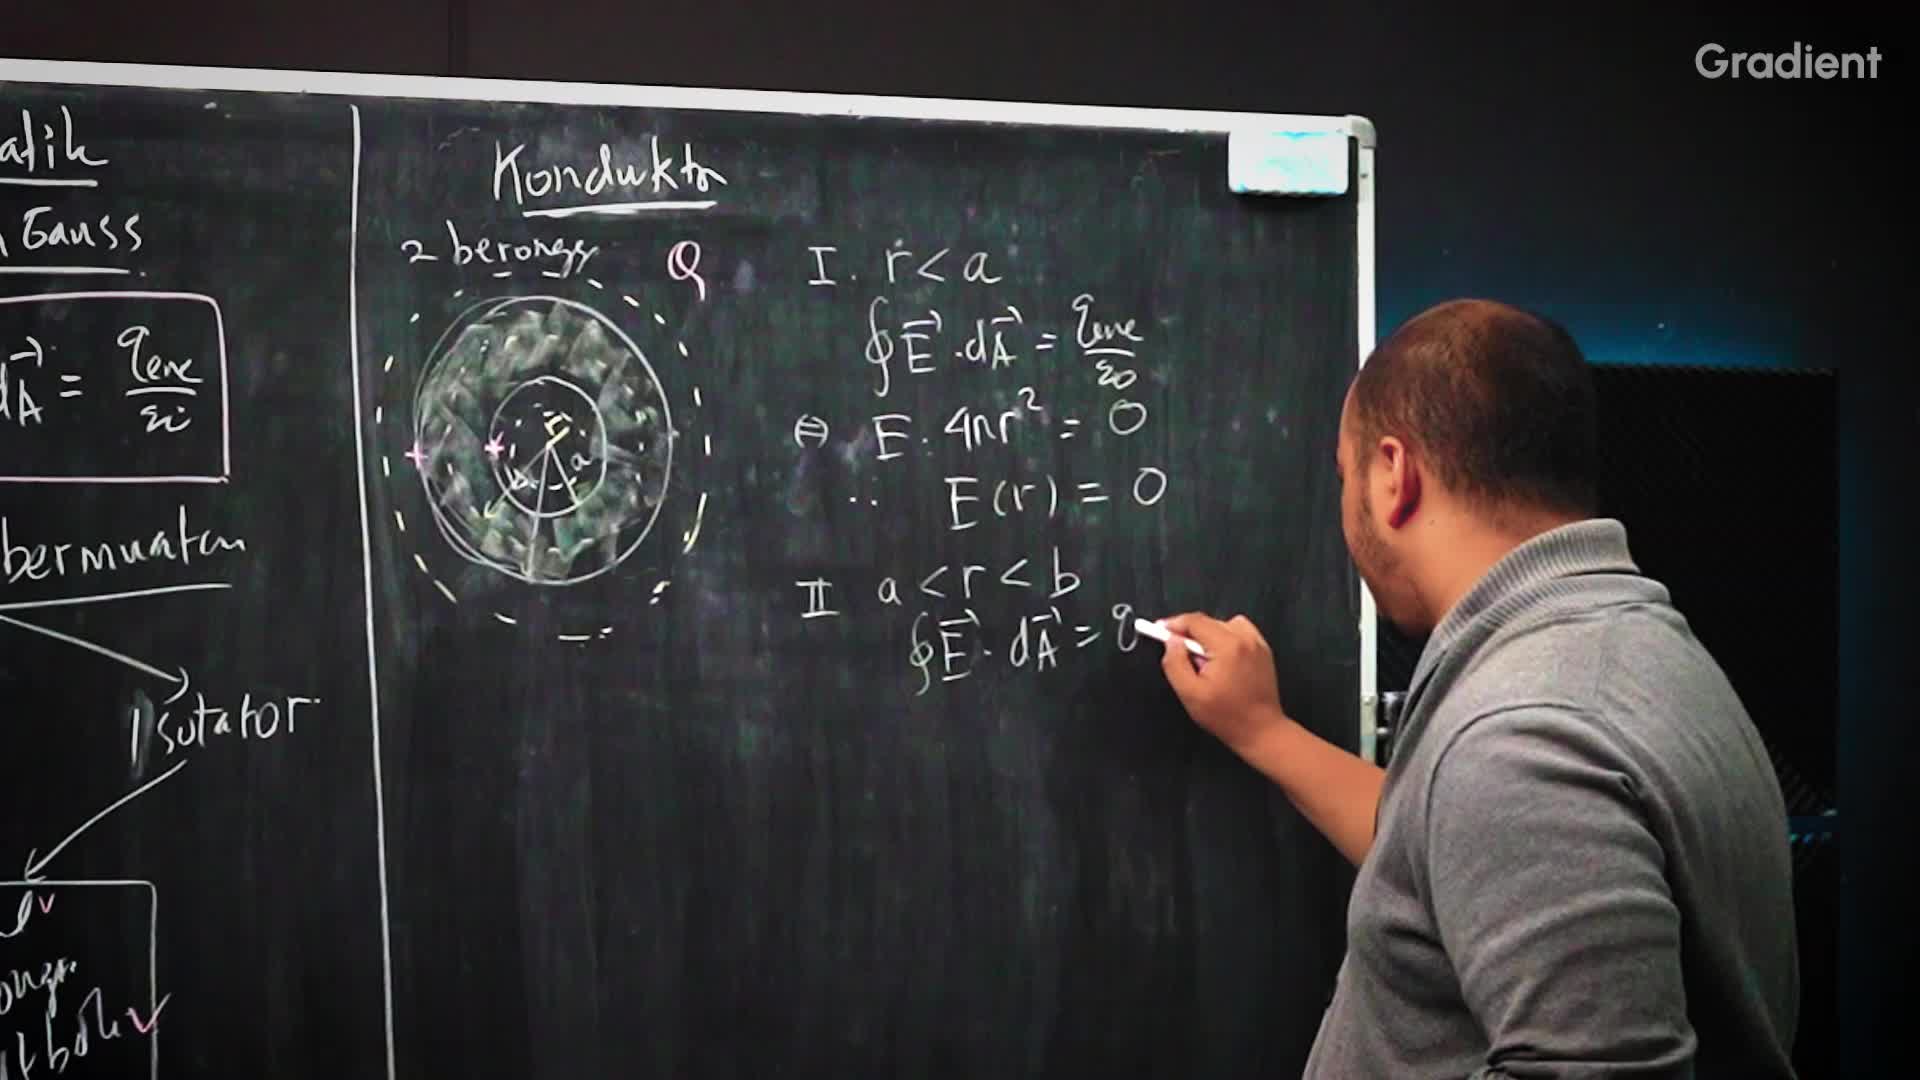 Gradient
atik
Gauss
dA⃗ = qenc/εo
bermuatan
Isolator
Konduktor
2 berongga
Q
r
a
b
I. r < a
∮E⃗ . dA⃗ = qenc/εo
⇔ E . 4πr² = 0
∴ E(r) = 0
II a < r < b
∮E⃗ . dA⃗ = q